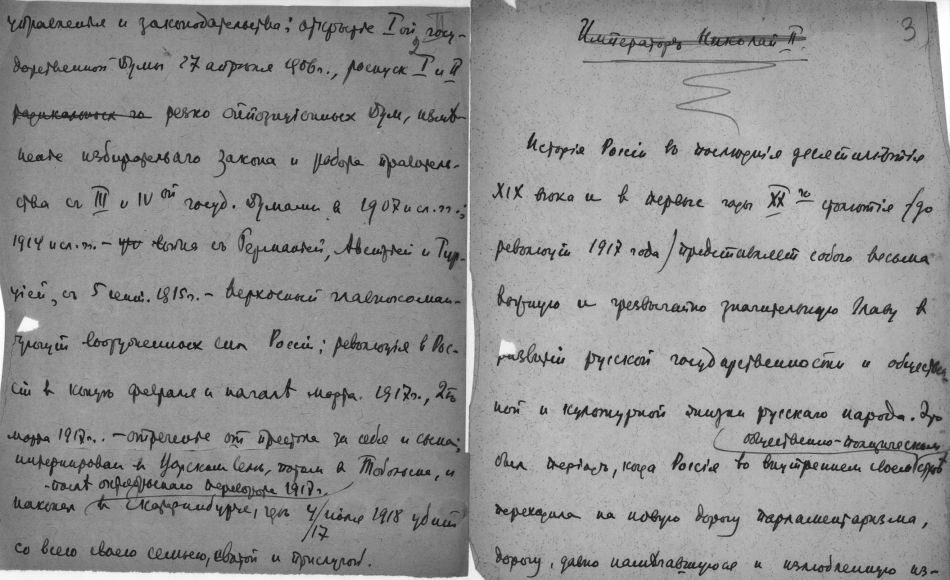 управления и законодательства; открытие I ой госу-
дарственной Думы 27 апреля 1906 г., роспуск I и II
резко оппозиционных Дум, измѣ-
нение избирательнаго закона и работа правитель-
ства съ III и IV ой госуд. Думами в 1907 и сл. гг.;
1914 и сл. гг. – война съ Германией, Австрией и Тур-
цией, съ 5 сент. 1815 г. – верховный главнокоман-
дующий вооруженных сил России; революция в Рос-
сии в конце февраля и началѣ марта 1917 г., 2го
марта 1917 г. – отречение от престола за себя и сына;
интернирован в Царском Селе, потом в Тобольске, и
послѣ октябрьскаго переворота 1917 г.
наконец в Екатеринбурге, где 4/17 июля 1918 убит
со всею своею семьею, свитой и прислугой.
3
Императоръ Николай II.
Исторія Россіи въ послѣднія десятилѣтія
XIX вѣка и в первые годы XX го столѣтія (до
революціи 1917 года) представляетъ собою весьма
важную и чрезвычайно значительную главу в
развитіи русской государственности и обществен
ной и культурной жизни русскаго народа. Это
общественно-политическом
был періодъ, когда Россія во внутреннем своем
переходила на новую дорогу парламентаризма,
дорогу, давно намѣчавшуюся и излюбленную из-